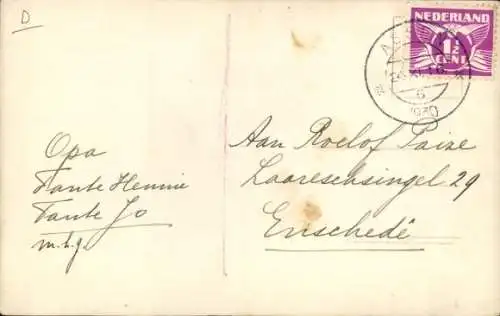 D
NEDERLAND
1½
CENT
6
1930
Opa
Tante Hennie
Tante Jo
m.h.g.
Aan Roelof Paize
Laaressensingel 29
Enschedé